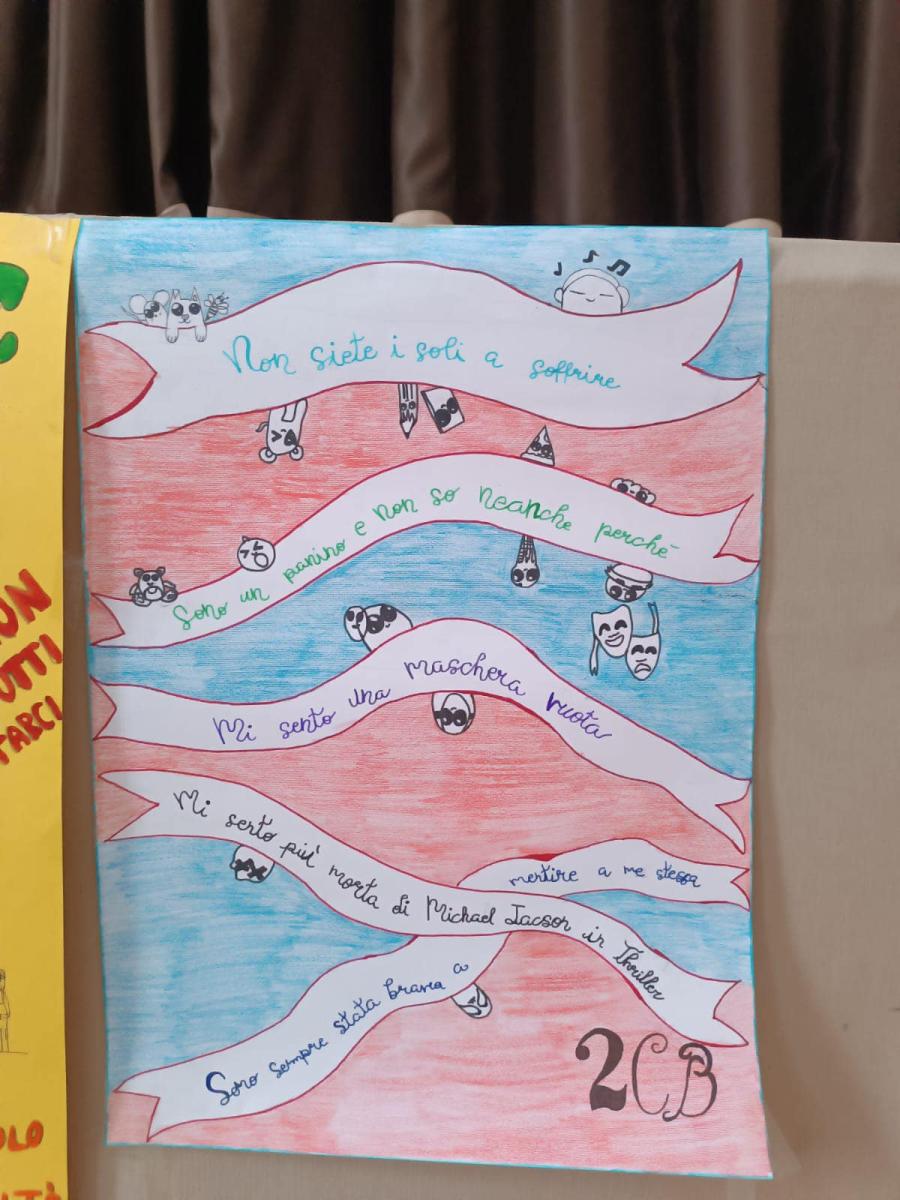 Non siete i soli a soffrire
Sono un panino e non so neanche perché
Mi sento una maschera vuota
Mi sento più morta di Michael Jacson in Thriller
Sono sempre stata brava a
mentire a me stessa
2CB
ON
UTTI
TARCI
OLO
ITÀ